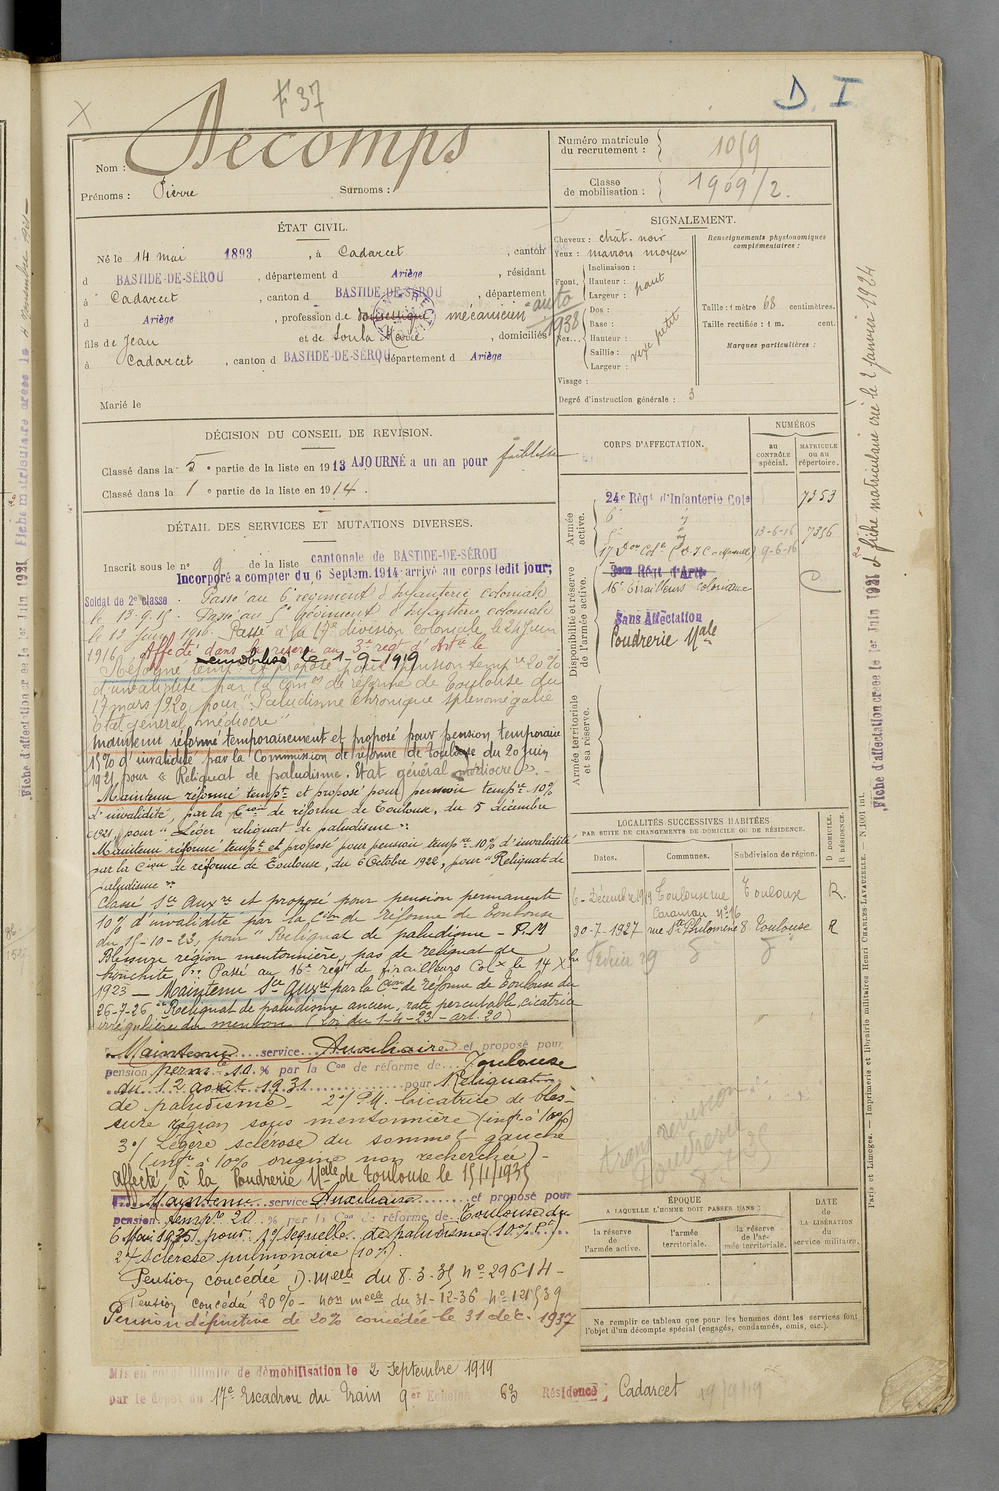 F 37
D. I
X
Nom : Décomps
Prénoms : Pierre
Surnoms :
Numéro matricule du recrutement : 1059
Classe de mobilisation : 1909/2.
ÉTAT CIVIL.
Né le 14 mai 1893, à Cadarcet, canton
d BASTIDE-DE-SÉROU, département d Ariège, résidant
à Cadarcet, canton d BASTIDE-DE-SÉROU, département
d Ariège, profession de domestique mécanicien auto 1938
fils de Jean et de Soula Marie, domiciliés
à Cadarcet, canton d BASTIDE-DE-SÉROU département d Ariège
Marié le
SIGNALEMENT.
Cheveux : chât. noir
Yeux : marron moyen
Front, Inclinaison :
Hauteur : haut
Largeur :
Nez... Dos :
Base :
Hauteur : vexe petit
Saillie :
Largeur :
Visage :
Renseignements physionomiques complémentaires :
Taille : 1 mètre 68 centimètres.
Taille rectifiée : 1 m. cent.
Marques particulières :
Degré d'instruction générale : 3
DÉCISION DU CONSEIL DE REVISION.
Classé dans la 5e partie de la liste en 1913 AJOURNÉ a un an pour faiblesse
Classé dans la 1e partie de la liste en 1914.
DÉTAIL DES SERVICES ET MUTATIONS DIVERSES.
Inscrit sous le n° 9 de la liste cantonale de BASTIDE-DE-SÉROU
Incorporé a compter du 6 Septem. 1914 arrivé au corps ledit jour;
Soldat de 2e classe Passé au 6 régiment d'Infanterie coloniale
le 13.9.15. Passé au 5e Régiment d'Infanterie coloniale
le 13 Juin 1916. Passé à la 17e division coloniale le 24 Juin
1916. Affecté dans la réserve au 3e regt d'Artie le
Démobilisé le 1-9-1919
Réformé tempre et proposé pour pension tempre 20%
d'invalidité par la Con de réforme de Toulouse du
17 mars 1920 pour "Paludisme chronique splénomégalie
Etat général médiocre"
Maintenu réformé temporairement et proposé pour pension temporaire
15% d'invalidité par la Commission de réforme de Toulouse du 20 Juin
1921 pour « Reliquat de paludisme. Etat général médiocre ». -
Maintenu réformé tempt et proposé pour pension tempre 10%
d'invalidité, par la Con de réforme de Toulouse, du 5 décembre
1921, pour "Léger reliquat de paludisme".
Maintenu réformé tempt et proposé pour pension tempre 10% d'invalidité
par la Con de réforme de Toulouse, du 6 Octobre 1922, pour "Reliquat de
paludisme".
Classé Sce Auxre et proposé pour pension permanente
10% d'invalidité par la Con de Réforme de Toulouse
du 15-10-23, pour "Reliquat de paludisme - P.M
Blessure région mentonnière, pas de reliquat de
bronchite". Passé au 16e regt de tirailleurs Colx le 14 Xbre
1923 - Maintenu Sce Auxre par la Con de réforme de Toulouse du
26-7-26 "Reliquat de paludisme ancien, rate percutable, cicatrice
irrégulière du menton (Loi du 1-4-23-art. 20)
Maintenu service Auxiliaire et proposé pour
pension perm. 10 % par la Con de réforme de Toulouse
du 12 août 1931 pour 1° Reliquat
de paludisme - 2°/ P.M. Cicatrice de bles-
sure région sous mentonnière (infr à 10%)
3°/ Légère sclérose du sommet gauche
(infr à 10% origine non recherchée) -
Affecté à la Poudrerie Nale de Toulouse le 15/1/1935
Maintenu service Auxiliaire et proposé pour
pension temp. 20 % par la Con de réforme de Toulouse du
6 Mai 1935 pour 1°/ Sequelles de paludisme (10% Pt)
2°/ Sclérose pulmonaire (10%).
Pension concédée D. Melle du 8.3.35 N° 29614 -
Pension concédée 20% - non melle du 31-12-36 N° 121539
Pension définitive de 20% concédée le 31 déc. 1937
Mis en congé illimité de démobilisation le 2 Septembre 1919
par le dépôt du 17e Escadron du Train 9er Echelon 63 Résidence : Cadarcet 19/9/19
CORPS D'AFFECTATION.
NUMÉROS
au CONTRÔLE spécial.
MATRICULE ou au répertoire.
Armée active.
24e Régt d'Infanterie Cole 7353
6e "
5e " 13-6-16 7356
17 Don Cole 9-6-16
Disponibilité et réserve de l'armée active.
3eme Régt d'Artie
16e Tirailleurs Coloniaux
Sans Affectation
Poudrerie Nale
Armée territoriale et sa réserve.
LOCALITÉS SUCCESSIVES HABITÉES
PAR SUITE DE CHANGEMENTS DE DOMICILE OU DE RÉSIDENCE.
Dates. Communes. Subdivision de région. D. DOMICILE. R. RÉSIDENCE.
6 - Décembre 1919 Toulouse rue Caraman N° 16 Toulouse R.
30-7-1927 rue Ste Philomène 8 Toulouse R
Poudrerie
ÉPOQUE
A LAQUELLE L'HOMME DOIT PASSER DANS :
la réserve de l'armée active.
l'armée territoriale.
la réserve de l'armée territoriale.
DATE de LA LIBÉRATION du service militaire.
Ne remplir ce tableau que pour les hommes dont les services font
l'objet d'un décompte spécial (engagés, condamnés, omis, etc.).
Paris et Limoges. — Imprimerie et librairie militaires Henri CHARLES-LAVAUZELLE. — N° 1001 int.
Fiche d'affectation créée le 1er Juin 1921 2e fiche matriculaire créée le 2 Janvier 1924
Fiche d'affectation créée le 1er Juin 1921 Fiche matriculaire créée le